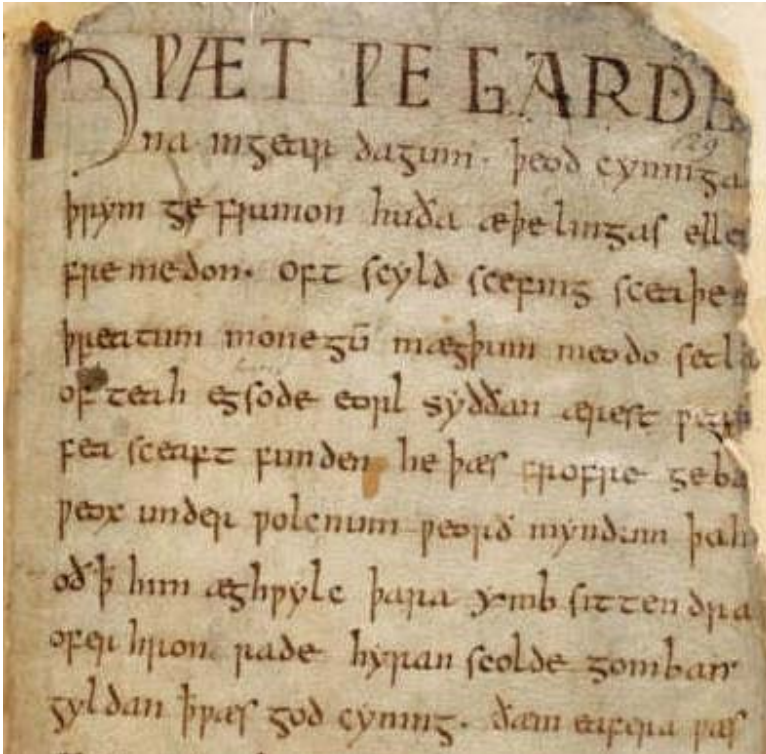 HǷÆT ǷE GARDE
na ingear dagum. þeod cyninga
þrym ge frunon huða æþelingas elle
fremedon. oft scyld scefing sceaþe
þreatum monegū mægþum meodo setla
of teah egsode eorl syððan ærest ƿear
fea sceaft funden he þæs frofre geba
ƿeox under ƿolcnum ƿeorð myndum þah
oð ꝥ him æghƿylc þara ymb sittendra
ofer hron rade hyran scolde gomban
gyldan ꝥ ƿæs god cyning. ðam eafera ƿæs